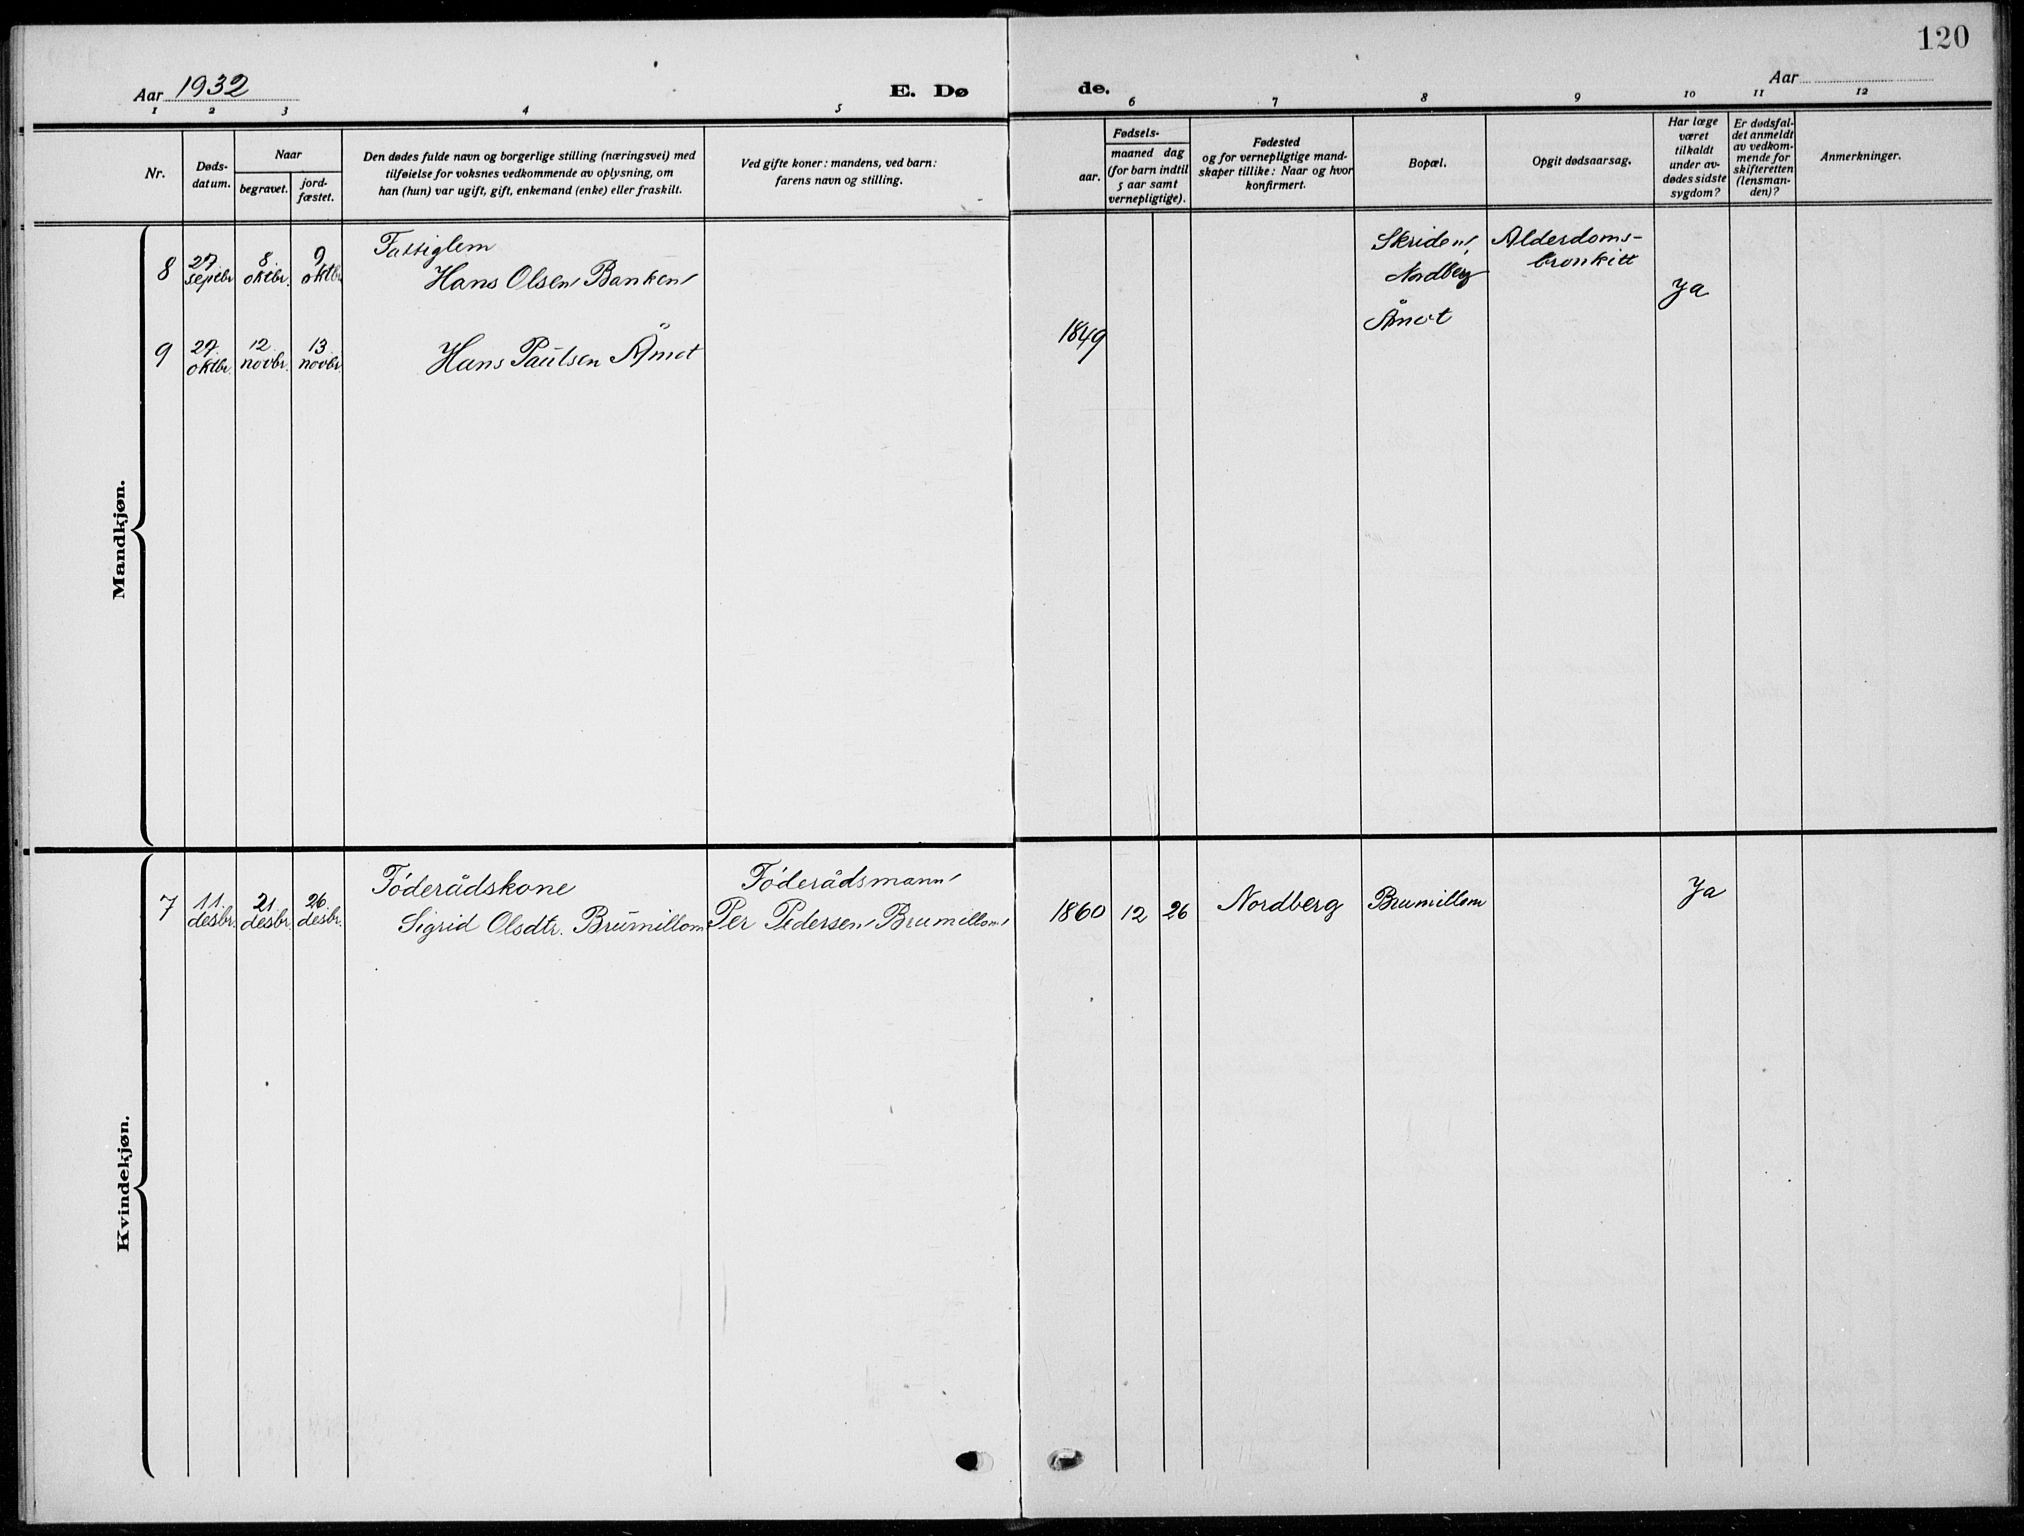 120
Aar 1932
E. Dø
de.
Aar
1 2 3 4 5 6 7 8 9 10 11 12
Nr.
Døds-
datum.
Naar
begravet.
jord-
fæstet.
Den dødes fulde navn og borgerlige stilling (næringsvei) med
tilføielse for voksnes vedkommende av oplysning, om
han (hun) var ugift, gift, enkemand (enke) eller fraskilt.
Ved gifte koner: mandens, ved barn:
farens navn og stilling.
Fødsels-
aar.
maaned dag
(for barn indtil
5 aar samt
vernepligtige).
Fødested
og for vernepligtige mand-
skaper tillike: Naar og hvor
konfirmert.
Bopæl.
Opgit dødsaarsag.
Har læge
været
tilkaldt
under av-
dødes sidste
sygdom?
Er dødsfal-
det anmeldt
av vedkom-
mende for
skifteretten
(lensman-
den)?
Anmerkninger.
Mandkjøn.
8
27.
septbr.
8.
oktbr.
9
oktbr.
Fattiglem
Hans Olsen Banken
Skriden
Nordberg
Alderdoms-
bronkitt
Ja
9
27.
oktbr.
12.
novbr.
13.
novbr.
Hans Paulsen Åmot
1849
Åmot
Kvindekjøn.
7
11.
desbr.
21.
desbr.
26.
desbr.
Föderådskone
Sigrid Olsdtr. Brumillom
Föderådsmann
Per Pedersen Brumillom
1860 12 26
Nordberg
Brumillom
Ja